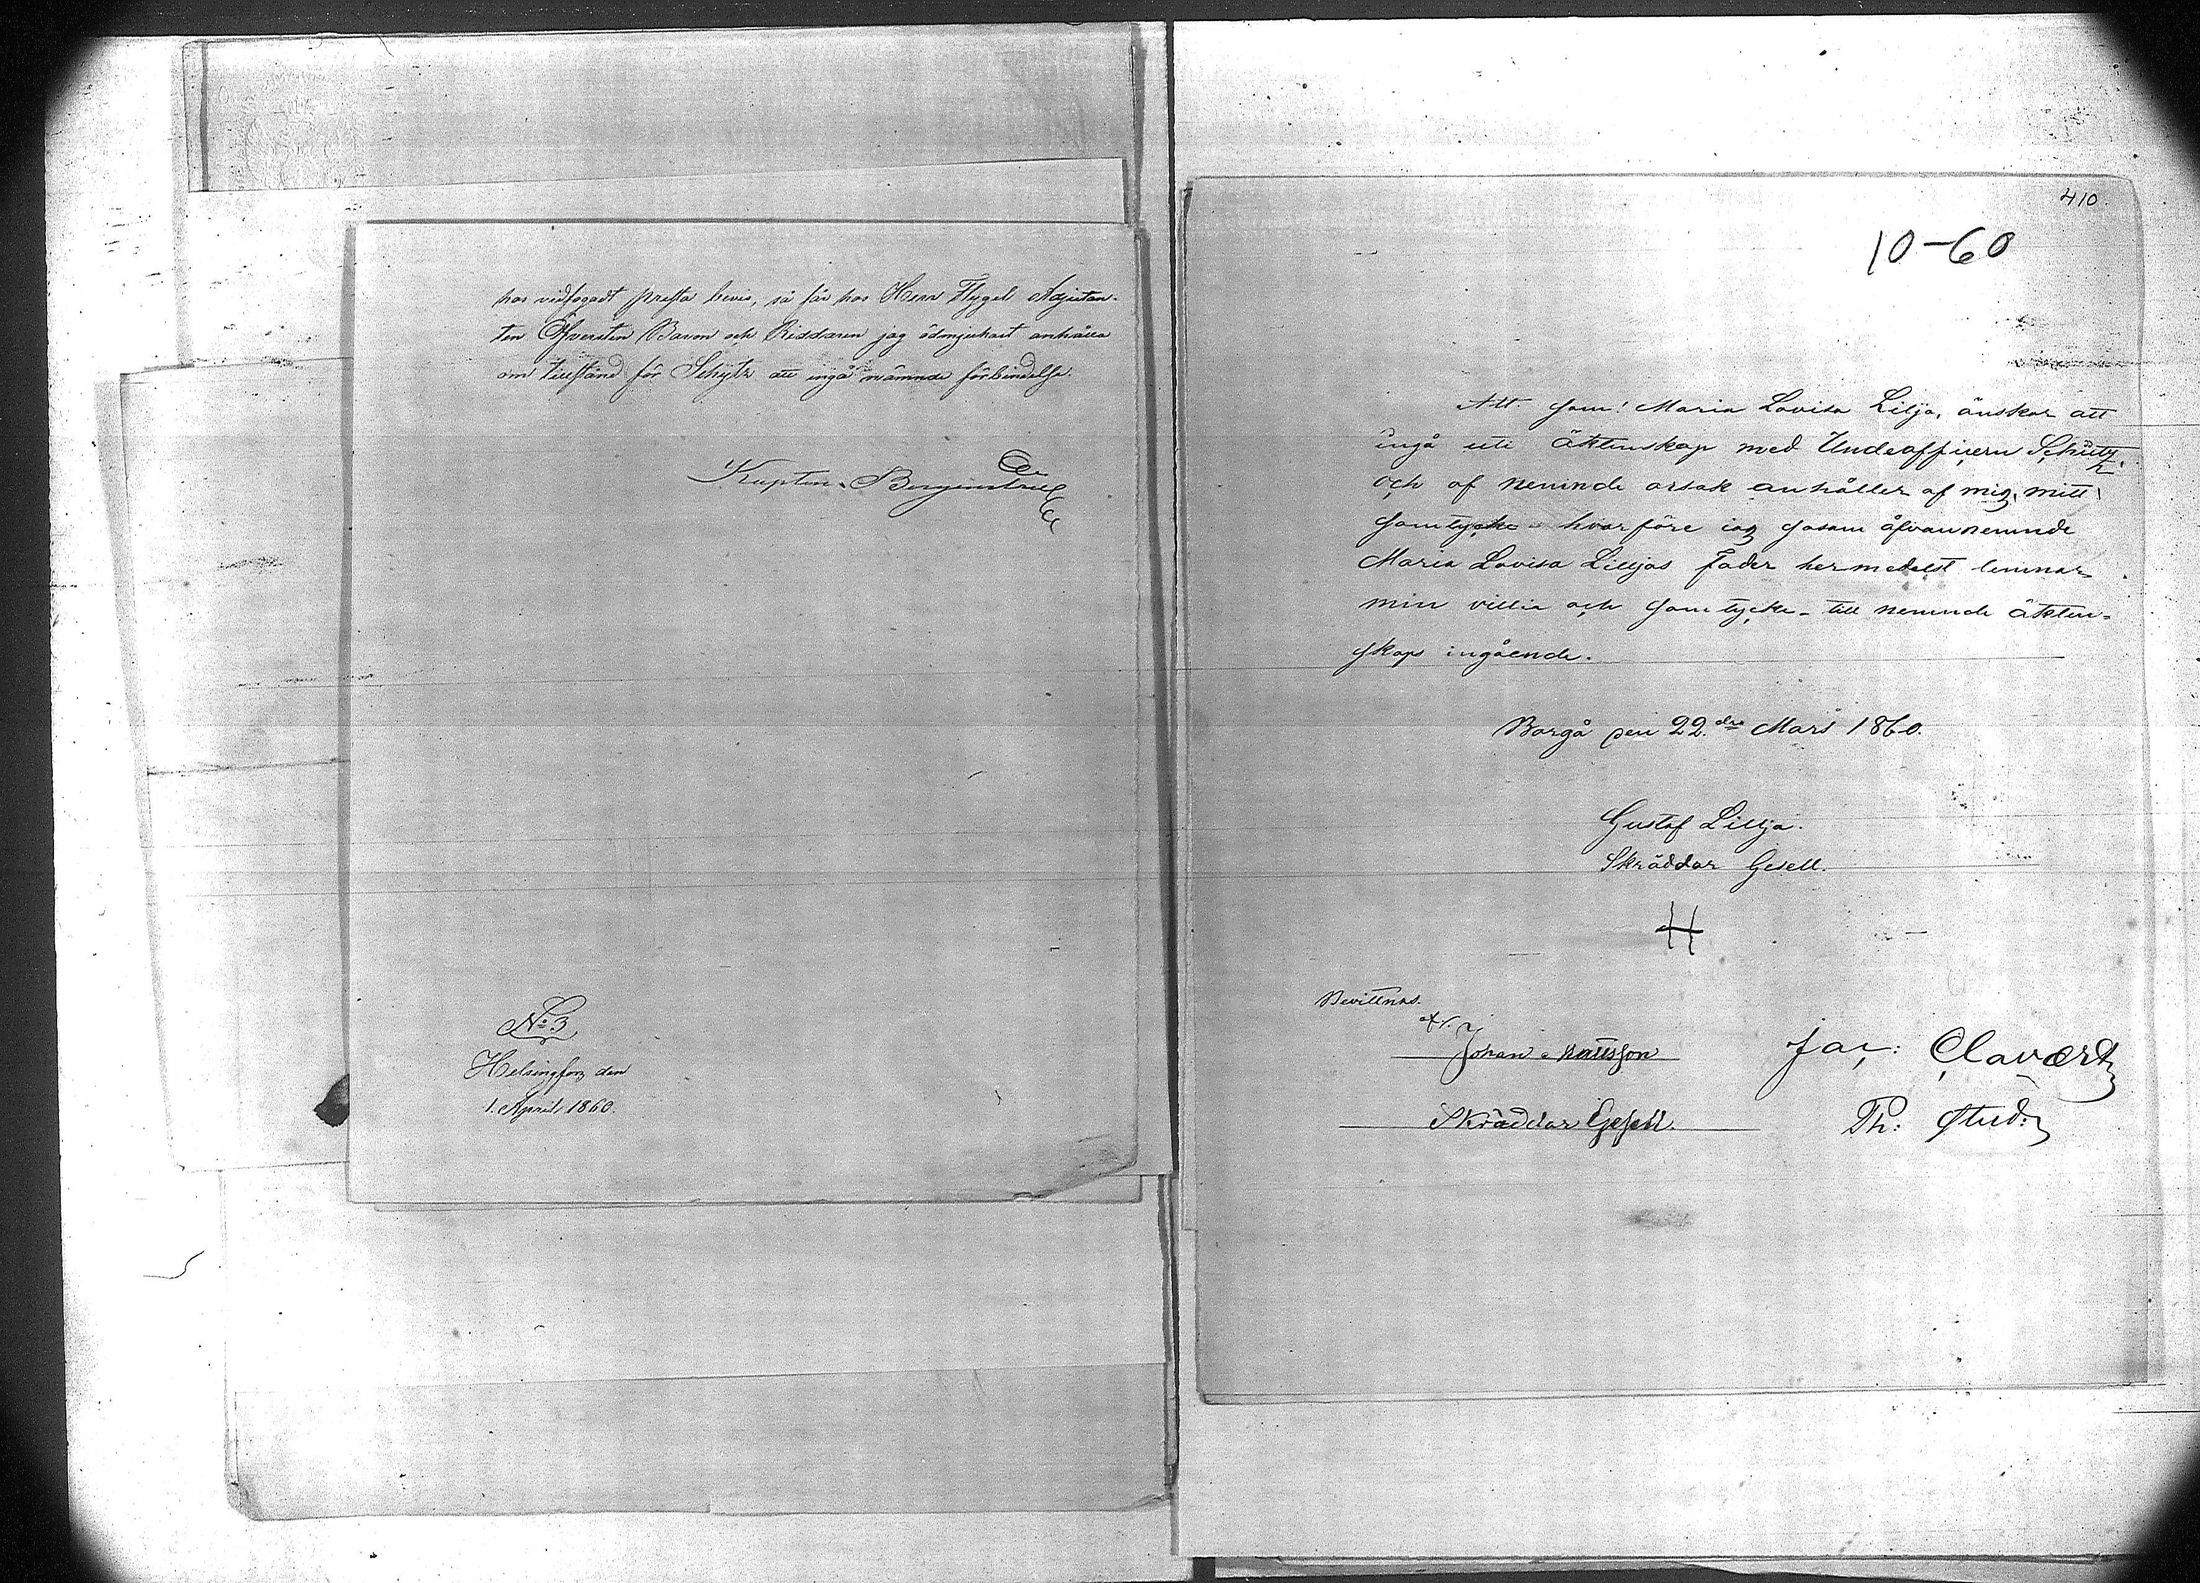 hos vidfogadt presta bevis, så får hos Herr Flygel Adjutan-
ten Öfversten Baron och Riddaren jag ödmjukast anhålla
om tillstånd för Schytz att ingå nämnde förbindelse.
Kapten Bergenstråle
No 3
Helsingfors den
1. April 1860.
410.
10-60
Att som: Maria Lovisa Lilja, önskar att
ingå uti äktenskap med Undeofficern Schütz
och af nemnde orsak anhåller af mig mitt
samtycke hvarföre jag sosom åfvannemnde
Maria Lovisa Liljas fader hermedelst lemnar
min villia och samtycke till nemnde äkten-
skaps ingående.
Borgå den 22.dra Mars 1860.
Gustaf Lillja.
Skräddar Gesell.
H
Bevittnas.
af.
Johan Mattsson
Jac: Clavært
Skräddar Gesell.
Th: Stud: